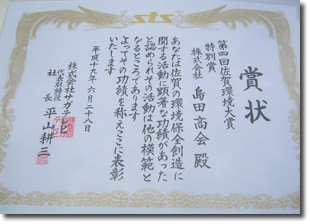 sts
賞状
第四回佐賀環境大賞
特別賞
株式会社 島田商会 殿
あなたは佐賀の環境保全創造に
関する活動に顕著な功績があった
と認められその活動は他の模範と
なるところであります
よってその功績を称えここに表彰
いたします
平成十九年六月二十八日
株式会社サガテレビ
代表取締役
社長 平山耕三